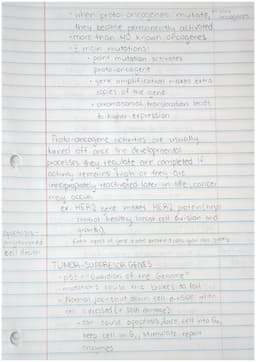 • when proto-oncogenes mutate,
they become permanently activated
• more than 40 known oncogenes
• 3 main mutations:
• point mutation activates
proto-oncogene
• gene amplification makes extra
copies of the gene
• chromosomal translocation leads
to higher expression
Proto-oncogene activities are usually
turned off once the developmental
processes they regulate are completed. If
activity remains high or they are
inappropriately reactivated later in life, cancer
may occur.
ex. HER2 gene makes HER2 protein (helps
control healthy breast cell division and
growth).
Apoptosis-
programmed
cell death
TUMOR-SUPPRESSOR GENES
• p53 - "Guardian of the Genome"
• mutations cause the brakes to fail
• Normal job - shut down cell division when
cell is stressed (ex. DNA damage)
• can cause apoptosis, put cell into G0,
keep cell in G1, stimulate repair
enzymes